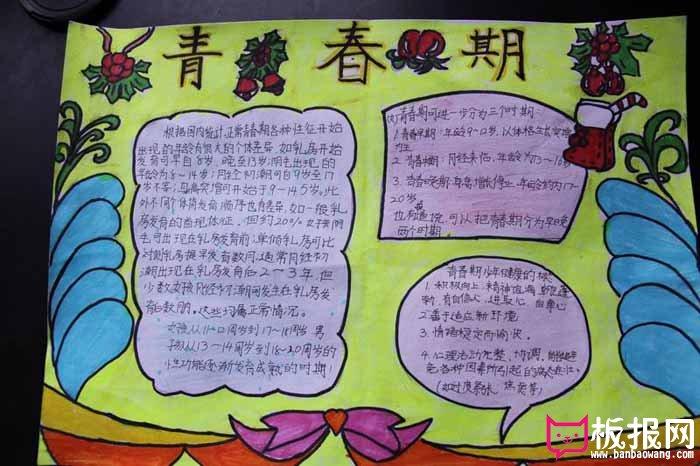 青春期
根据国内统计正常青春期各种性征开始
出现的年龄有很大的个体差异,如乳房开始
发育可早自8岁,晚至13岁;阴毛出现的
年龄为8～14岁;月经初潮可自9岁至17
岁不等;身高突增可开始于9～14.5岁。此
外不同个体
发育顺序也有差异,如一般乳
房发育的出现
但约20%女孩阴
毛可出现在乳房发育前;单侧乳房可比
对侧乳房提早发育数月;通常月经初
潮出现在乳房发育后2～3年,但
少数女孩月经初潮
发生在乳房发
育的数月。这些均属正常情况。
女孩从11～12周岁到17～18周岁 男
孩从13～14周岁到18～20周岁的
性功能逐渐发育成熟的时期!
青春期可进一步分为三个时期
1.青春早期:年龄9～12岁,以体格生长突增
为主
2.青春中期:月经来临,年龄为13～16岁
3.青春晚期:身高增长停止,年龄约为17～
20岁。
也有
可以把青春期分为早晚
两个时期。
青春期少年健康的标
1.积极向上,精神饱满,朝气蓬
勃,有自信心,进取心,自尊心
2.善于适应新环境
3.情绪稳定而愉快。
4.心理活动完整,协调,能避
免各种因素所引起的病态
(如过度紧张、焦虑等)
板报网
www.banbaowang.com